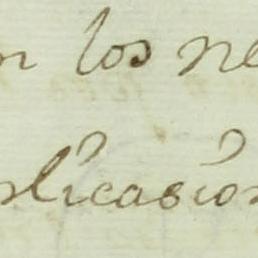 n los ne
plicasion